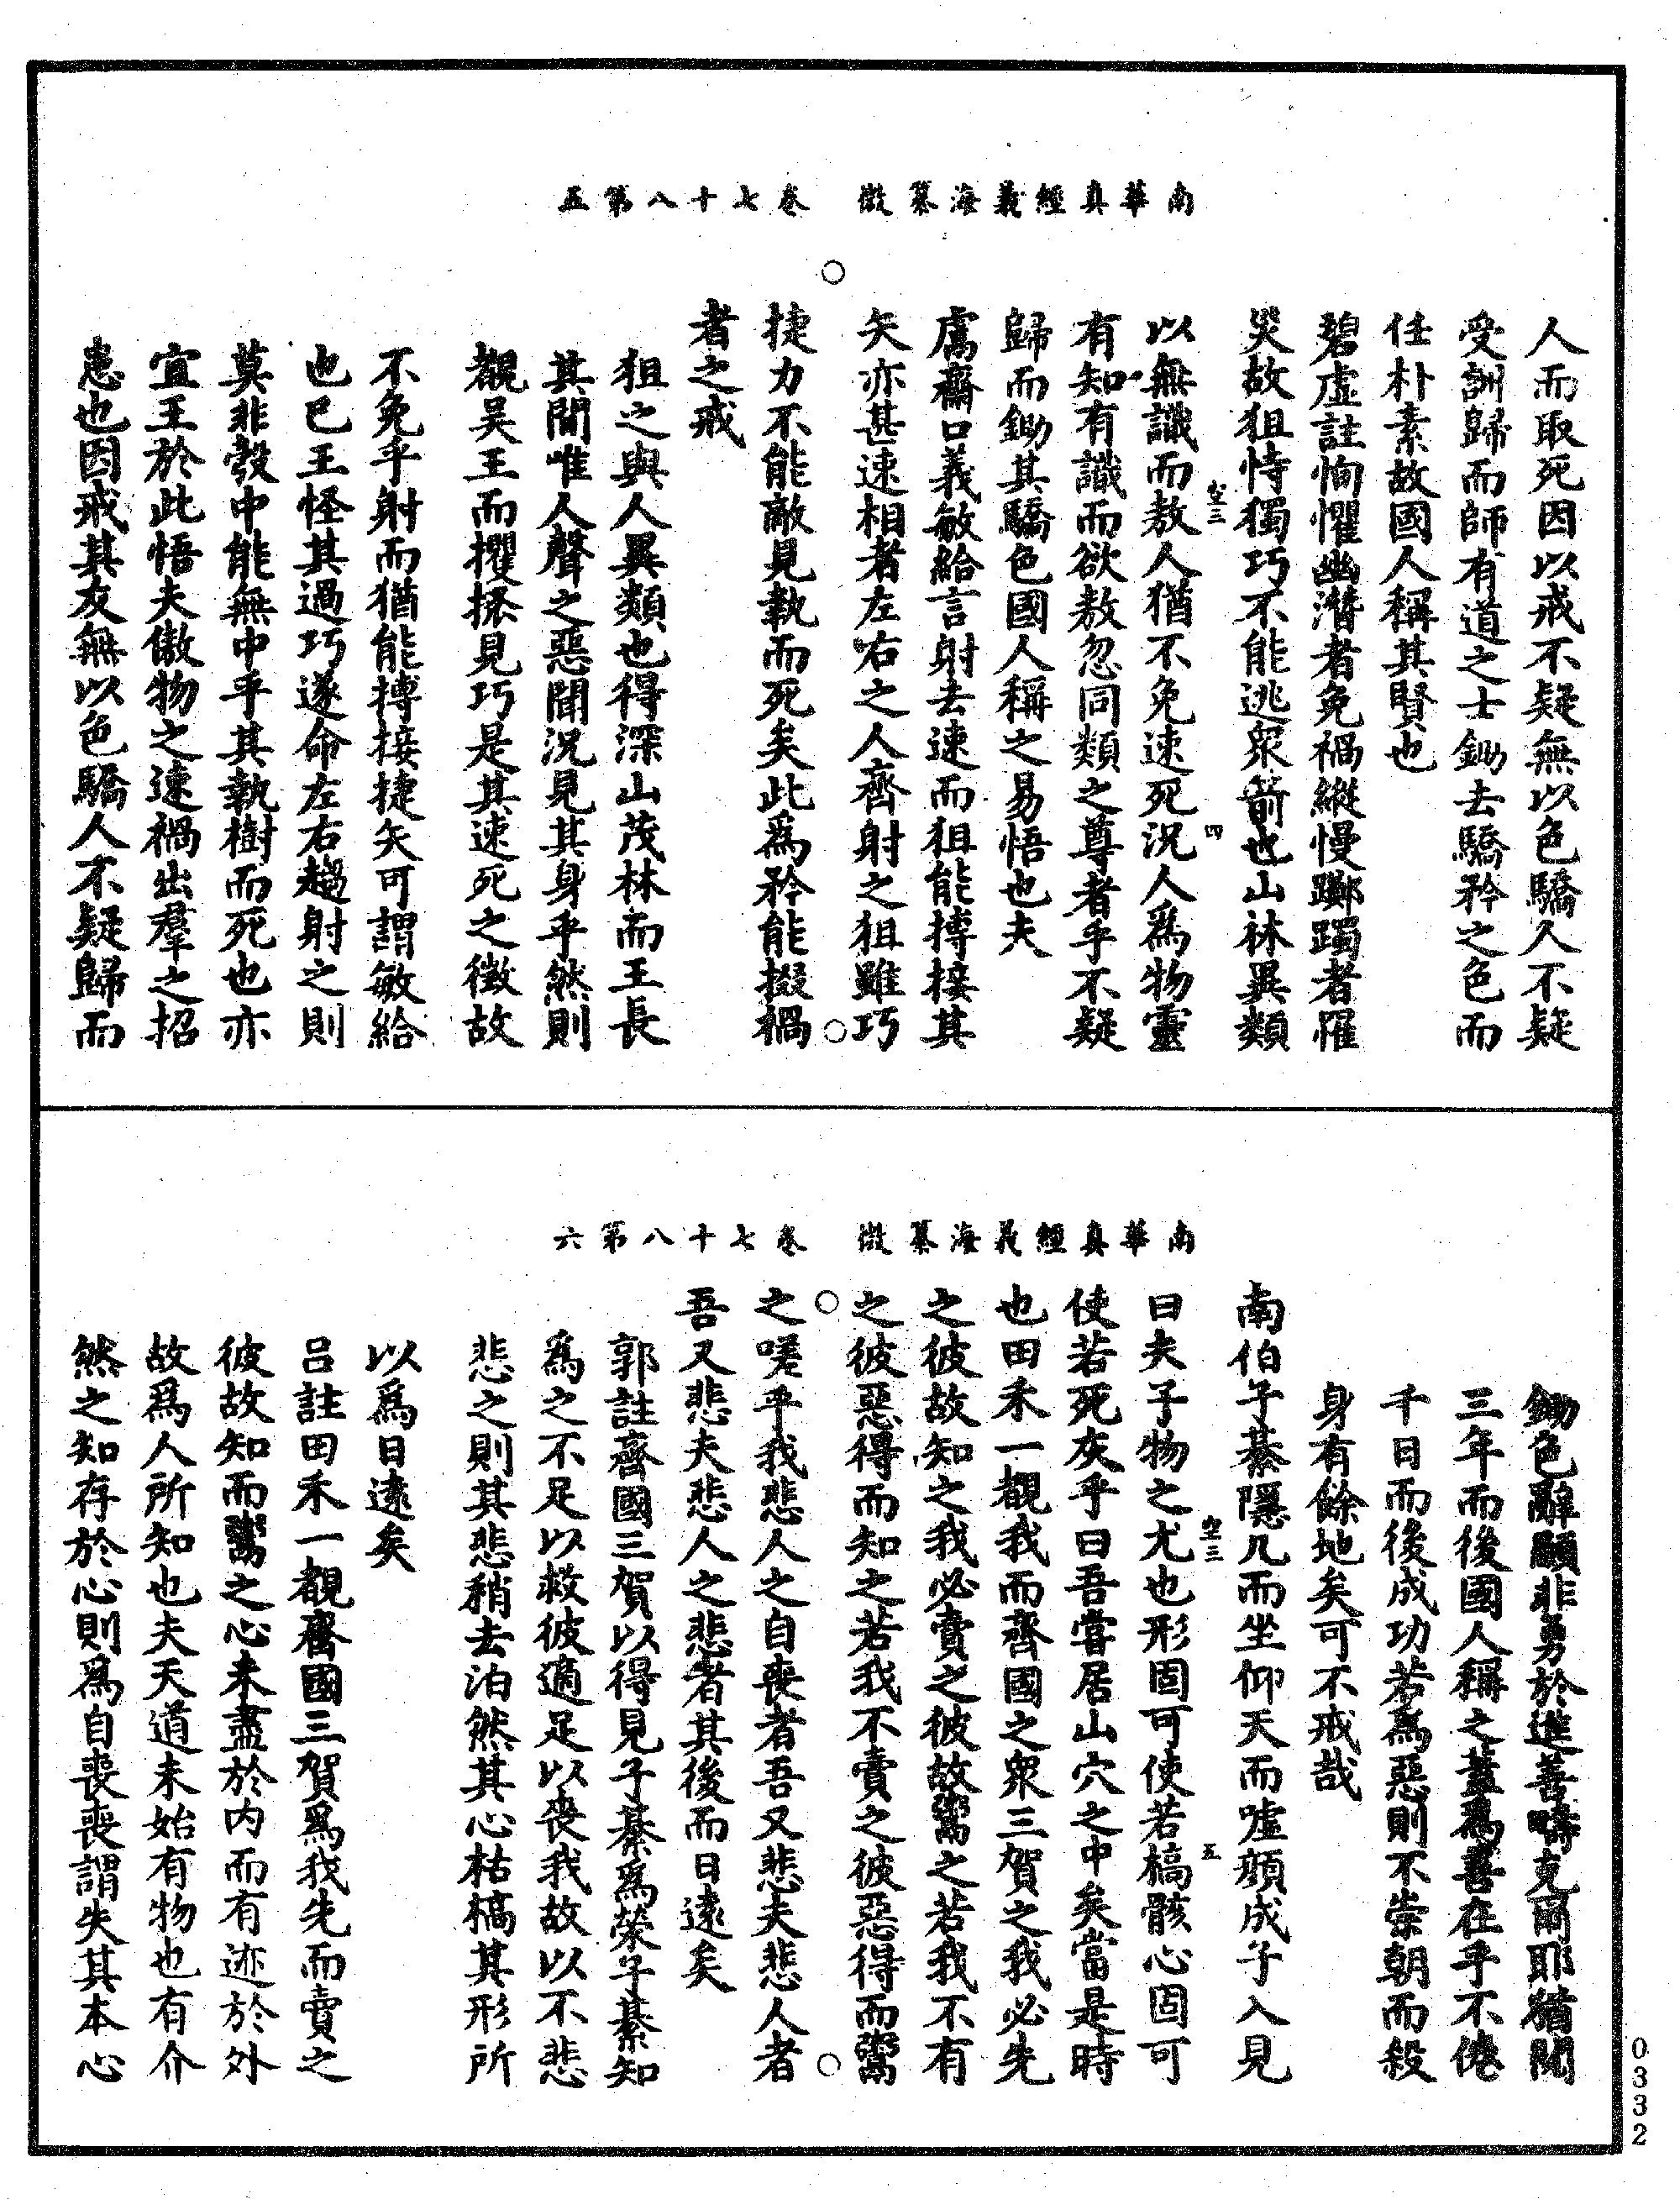 南華真經義海纂微　卷七十八第五
人而取死因以戒不疑無以色驕人不疑
受訓歸而師有道之士鋤去驕矜之色而
任朴素故國人稱其賢也
碧虛註恂懼幽潛者免禍縱慢躑躅者罹
災故狙恃獨巧不能逃衆箭也山林異類
以無識而敖人猶不免速死況人爲物靈
有知有識而欲敖忽同類之尊者乎不疑
歸而鋤其驕色國人稱之易悟也夫
鬳齋口義敏給言射去速而狙能摶接其
矢亦甚速相者左右之人齊射之狙雖巧
捷力不能敵見執而死矣此爲矜能掇禍
者之戒
狙之與人異類也得深山茂林而王長
其間唯人聲之惡聞況見其身乎然則
覩吳王而攫搔見巧是其速死之徵故
不免乎射而猶能摶接捷矢可謂敏給
也已王怪其過巧遂命左右趨射之則
莫非彀中能無中乎其執樹而死也亦
宜王於此悟夫傲物之速禍出羣之招
患也因戒其友無以色驕人不疑歸而
空三
四
南華真經義海纂微　卷七十八第六
鋤色辭顯非勇於進善疇克爾耶猶閱
三年而後國人稱之蓋爲善在乎不倦
千日而後成功若爲惡則不崇朝而殺
身有餘地矣可不戒哉
南伯子綦隱几而坐仰天而噓顔成子入見
曰夫子物之尤也形固可使若槁骸心固可
使若死灰乎曰吾嘗居山穴之中矣當是時
也田禾一覩我而齊國之衆三賀之我必先
之彼故知之我必賣之彼故鬻之若我不有
之彼惡得而知之若我不賣之彼惡得而鬻
之嗟乎我悲人之自喪者吾又悲夫悲人者
吾又悲夫悲人之悲者其後而日遠矣
郭註齊國三賀以得見子綦爲榮子綦知
爲之不足以救彼適足以喪我故以不悲
悲之則其悲稍去泊然其心枯槁其形所
以爲日遠矣
呂註田禾一覩齊國三賀爲我先而賣之
彼故知而鬻之心未盡於内而有迹於外
故爲人所知也夫天道未始有物也有介
然之知存於心則爲自喪喪謂失其本心
空三
五
0332